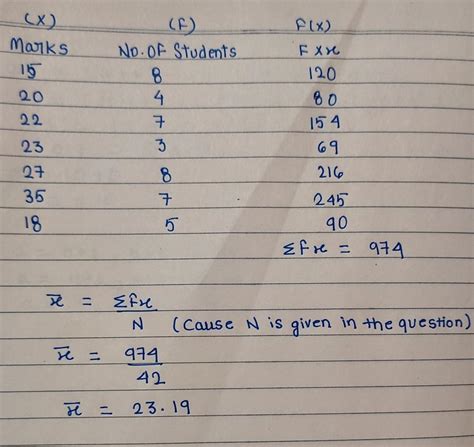 (X) (F) F(X)
Marks No. OF Students F X x
15 8 120
20 4 80
22 7 154
23 3 69
27 8 216
35 7 245
18 5 90
Σfx = 974
x̄ = Σfx
N (Cause N is given in the question)
x̄ = 974
42
x̄ = 23.19